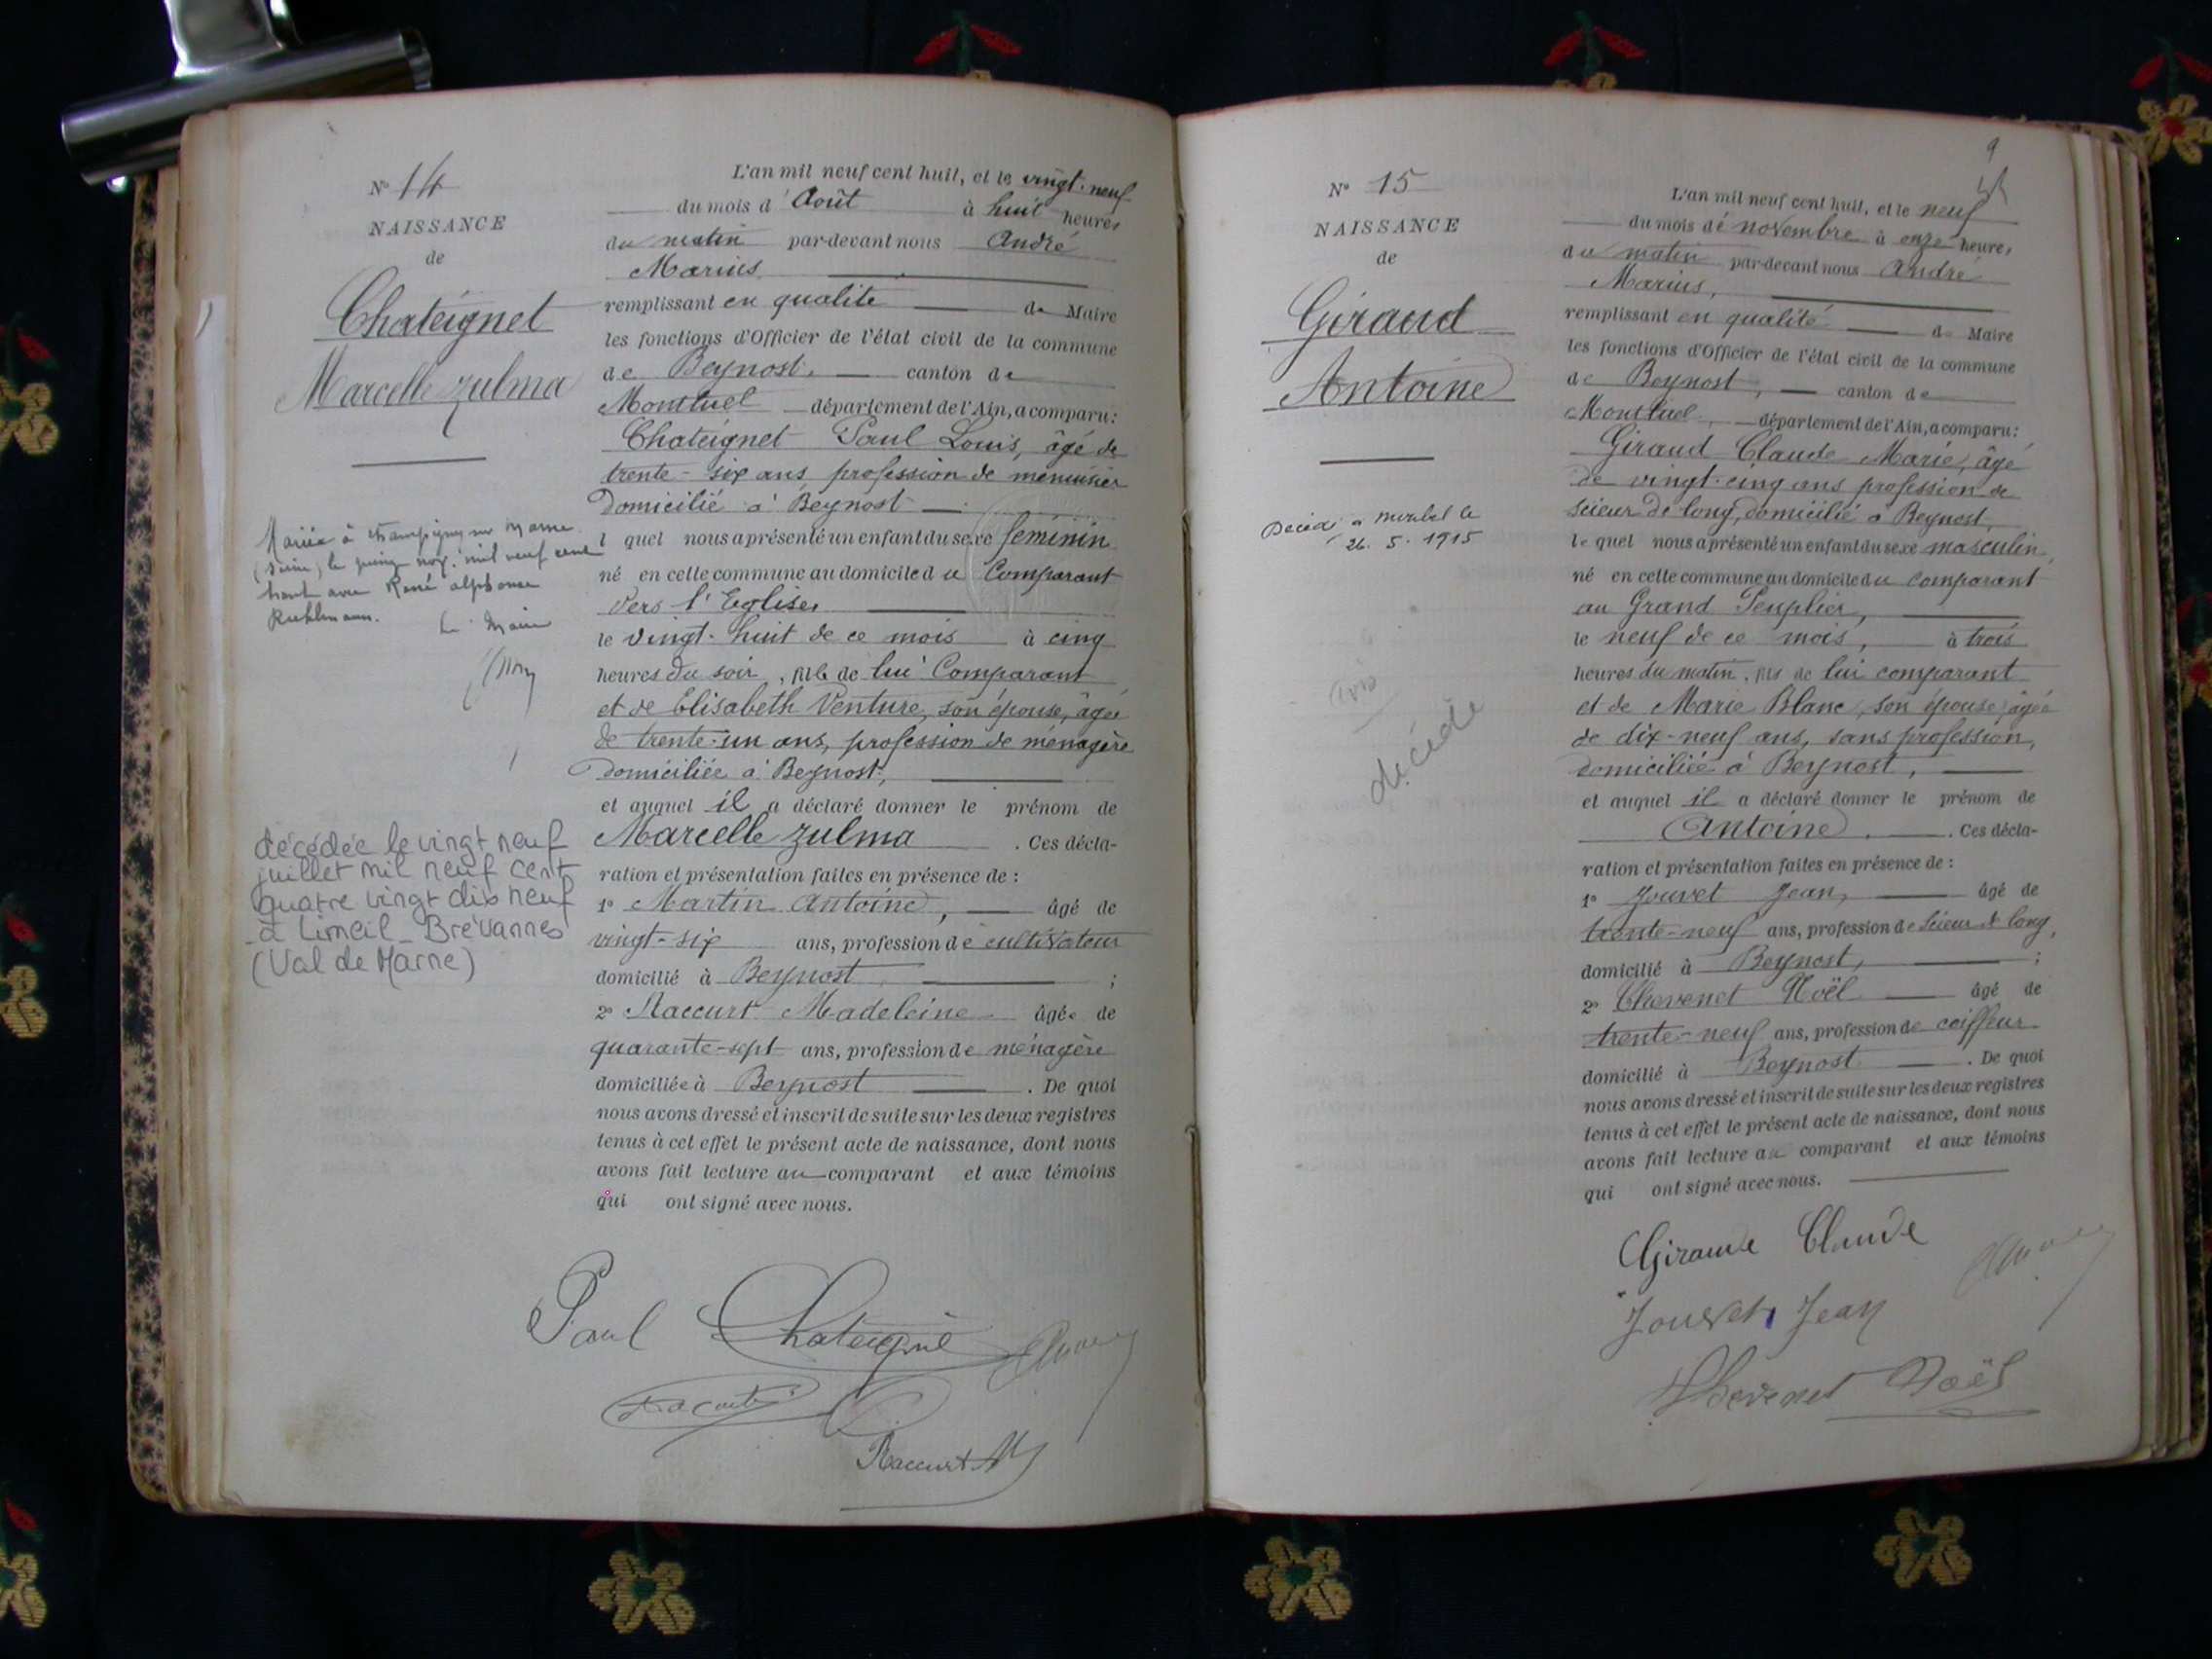 N° 14
NAISSANCE
de
Chateignet
Marcelle Zulma
Mariée à Champigny sur Marne
(Seine) le quinze nov. mil neuf cent
trent avec René Alphonse
Ruhlmann.
Le Maire
décédée le vingt neuf
juillet mil neuf cent
quatre vingt dix neuf
à Limeil-Brévannes
(Val de Marne)
L'an mil neuf cent huit, et le vingt-neuf
du mois d'Août à huit heures
du matin par-devant nous André
Marius
remplissant en qualité de Maire
les fonctions d'Officier de l'état civil de la commune
de Beynost, canton de
Montluel département de l'Ain, a comparu:
Chateignet Paul Louis, âgé de
trente-six ans, profession de menuisier
domicilié à Beynost
lequel nous a présenté un enfant du sexe féminin
né en cette commune au domicile du Comparant
Vers l'Eglise,
le vingt-huit de ce mois à cinq
heures du soir, fille de lui Comparant
et de Elisabeth Venture, son épouse, âgée
de trente-un ans, profession de ménagère
domiciliée à Beynost,
et auquel il a déclaré donner le prénom de
Marcelle Zulma. Ces décla-
ration et présentation faites en présence de :
1° Martin Antoine, âgé de
vingt-six ans, profession de cultivateur
domicilié à Beynost ;
2° Raccurt Madeleine âgée de
quarante-sept ans, profession de ménagère
domiciliée à Beynost. De quoi
nous avons dressé et inscrit de suite sur les deux registres
tenus à cet effet le présent acte de naissance, dont nous
avons fait lecture au comparant et aux témoins
qui ont signé avec nous.
Paul Chateigné
Raccurt M
9
N° 15
NAISSANCE
de
Giraud
Antoine
Décédé à Miribel le
26. 5. 1915
décédé
L'an mil neuf cent huit, et le neuf
du mois de novembre à onze heures
du matin par-devant nous André
Marius,
remplissant en qualité de Maire
les fonctions d'Officier de l'état civil de la commune
de Beynost, canton de
Montluel, département de l'Ain, a comparu:
Giraud Claude Marie, âgé
de vingt-cinq ans profession de
scieur de long, domicilié à Beynost,
lequel nous a présenté un enfant du sexe masculin,
né en cette commune au domicile du comparant
au Grand Peuplier,
le neuf de ce mois, à trois
heures du matin, fils de lui comparant
et de Marie Blanc, son épouse, âgée
de dix-neuf ans, sans profession,
domiciliée à Beynost,
et auquel il a déclaré donner le prénom de
Antoine. Ces décla-
ration et présentation faites en présence de :
1° Jouvet Jean, âgé de
trente-neuf ans, profession de scieur de long,
domicilié à Beynost, ;
2° Chevenet Noël âgé de
trente-neuf ans, profession de coiffeur
domicilié à Beynost. De quoi
nous avons dressé et inscrit de suite sur les deux registres
tenus à cet effet le présent acte de naissance, dont nous
avons fait lecture au comparant et aux témoins
qui ont signé avec nous.
Giraude Claude
Jouvet Jean
Chevenet Noël